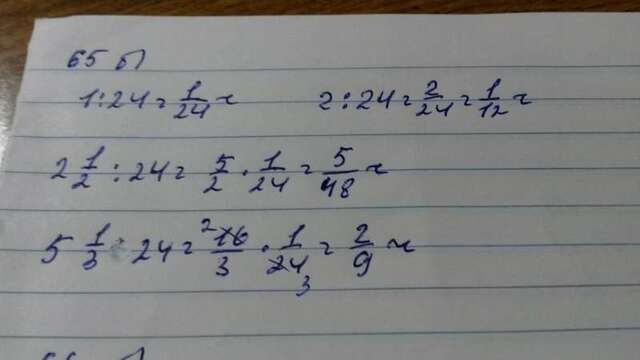 65 б)
1:24=1/24 ч 2:24=2/24=1/12 ч
2 1/2 : 24 = 5/2 · 1/24 = 5/48 ч
5 1/3 : 24 = 16/3 · 1/24 = 2/9 ч
2
3